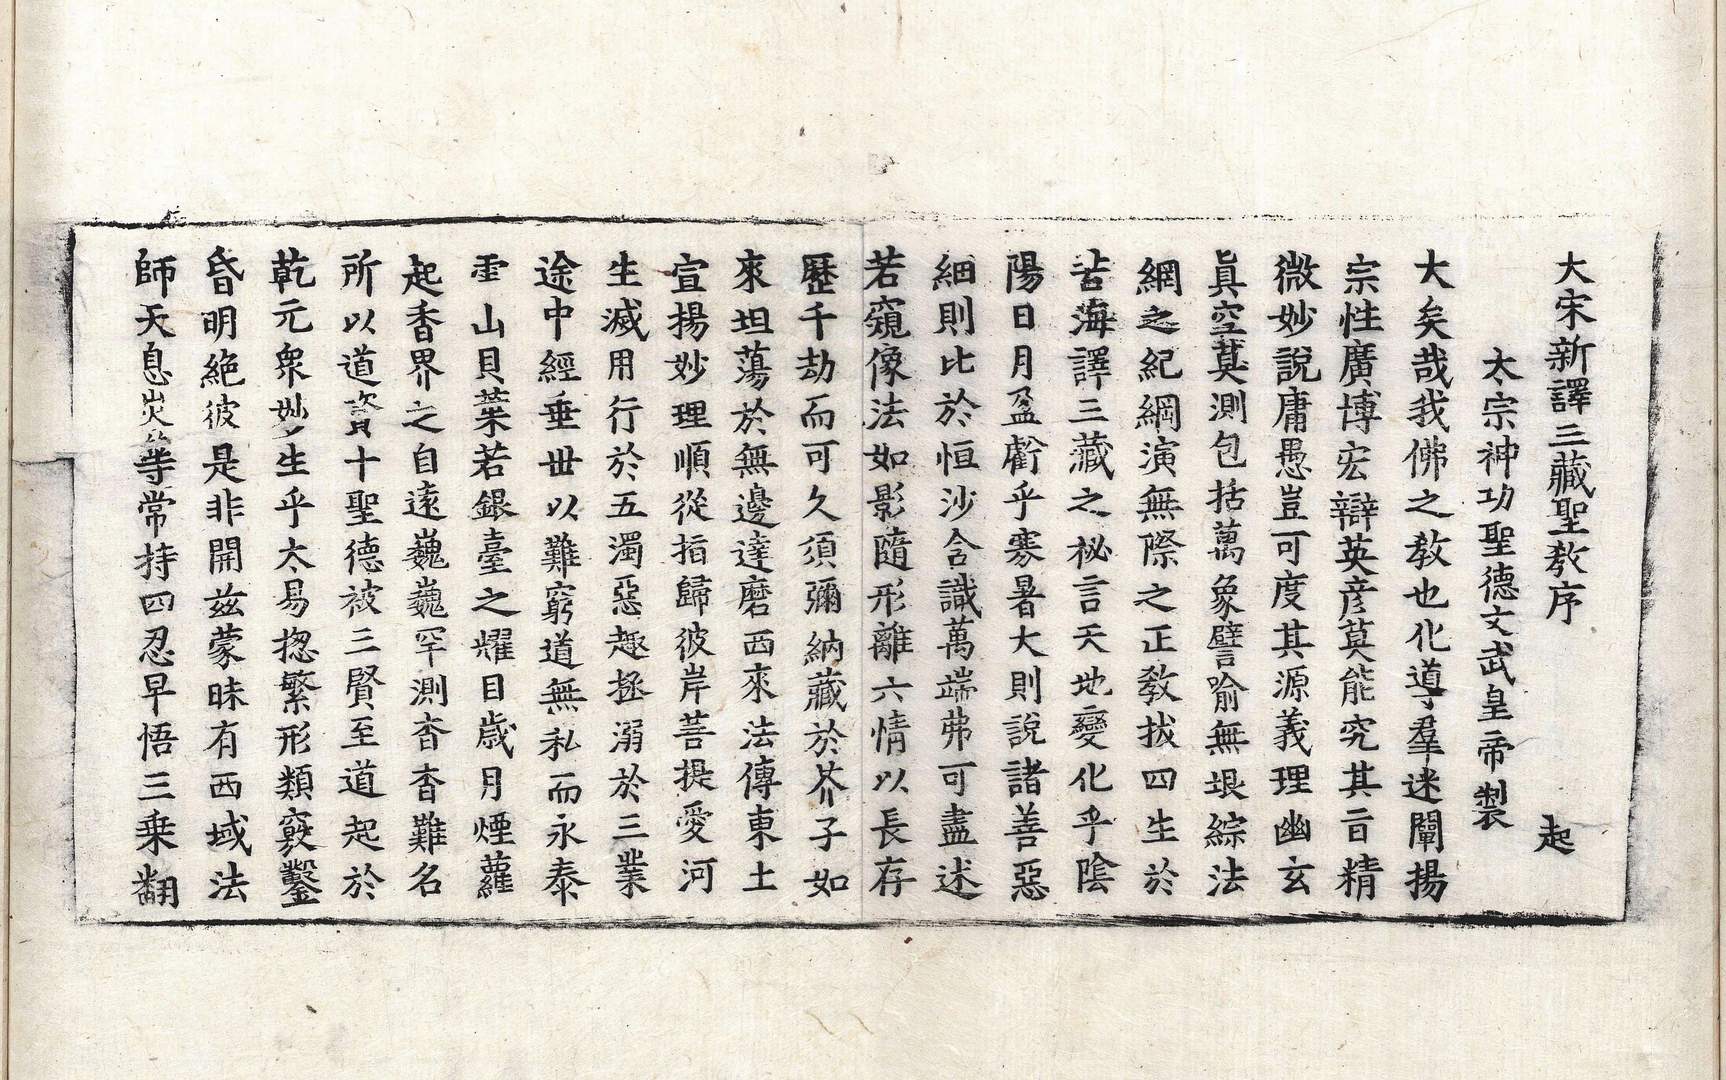 大宋新譯三藏聖教序 起
太宗神功聖德文武皇帝製
大矣哉我佛之教也化導羣迷闡揚
宗性廣博宏辯英彦莫能究其旨精
微妙說庸愚豈可度其源義理幽玄
眞空莫測包括萬象譬喻無垠綜法
網之紀綱演無際之正教拔四生於
苦海譯三藏之祕言天地變化乎陰
陽日月盈虧乎寒暑大則說諸善惡
細則比於恒沙含識萬端弗可盡述
若窺像法如影隨形離六情以長存
歷千劫而可久須彌納藏於芥子如
來坦蕩於無邊達磨西來法傳東土
宣揚妙理順從指歸彼岸菩提愛河
生滅用行於五濁惡趣拯溺於三業
途中經垂世以難窮道無私而永泰
雪山貝葉若銀臺之耀目歲月煙蘿
起香界之自遠巍巍罕測杳杳難名
所以道資十聖德被三賢至道起於
乾元衆妙生乎太易揔繁形類竅鑿
昏明絶彼是非開茲蒙昧有西域法
師天息災等常持四忍早悟三乘翻